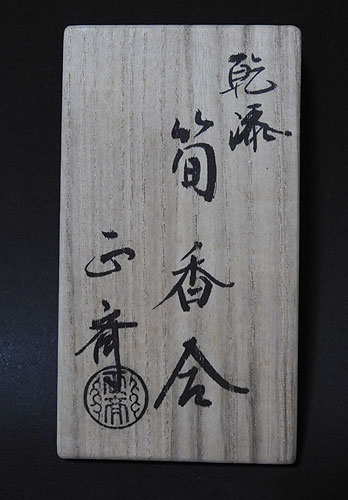 乾漆
筍香合
正斎